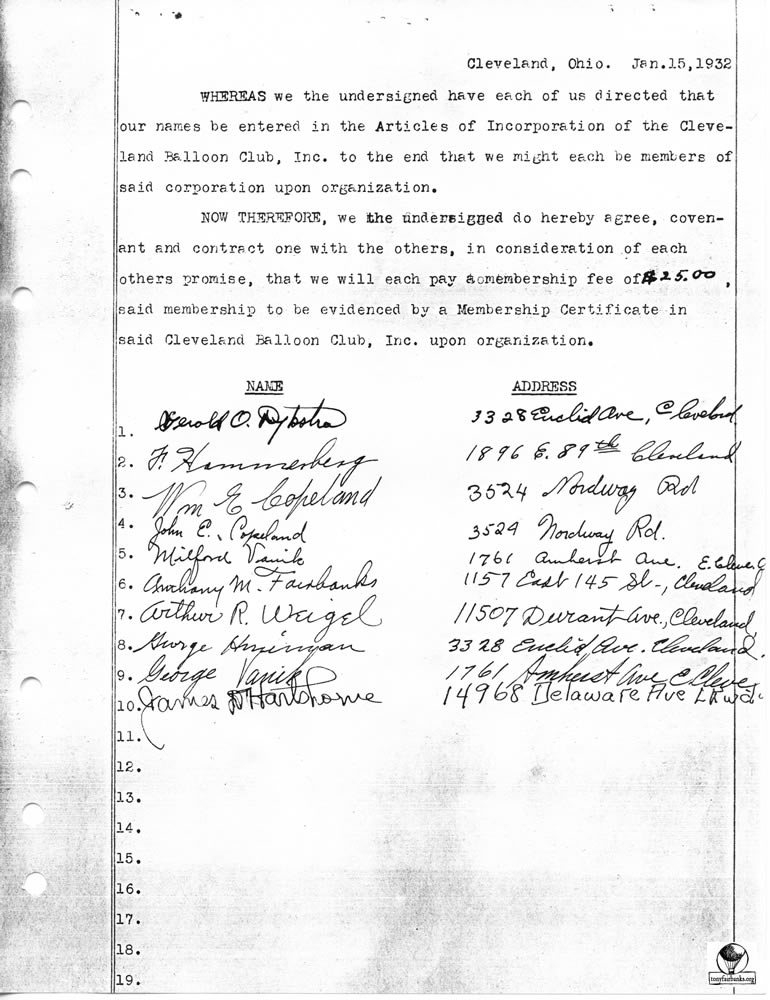 Cleveland, Ohio. Jan.15,1932
WHEREAS we the undersigned have each of us directed that
our names be entered in the Articles of Incorporation of the Cleve-
land Balloon Club, Inc. to the end that we might each be members of
said corporation upon organization.
NOW THEREFORE, we the undersigned do hereby agree, coven-
ant and contract one with the others, in consideration of each
others promise, that we will each pay a membership fee of $25.00,
said membership to be evidenced by a Membership Certificate in
said Cleveland Balloon Club, Inc. upon organization.
NAME ADDRESS
1. Gerold O. Dykstra 3328 Euclid Ave, Cleveland
2. F. Hammerberg 1896 E. 89th Cleveland
3. Wm E Copeland 3524 Nordway Rd
4. John E. Copeland 3524 Nordway Rd.
5. Milford Vanik 1761 Amherst Ave. E. Cleve. O
6. Anthony M. Fairbanks 1157 East 145 St-, Cleveland
7. Arthur R. Weigel 11507 Durant Ave., Cleveland
8. George 3328 Euclid Ave. Cleveland.
9. George Vanik 1761 Amherst Ave E Cleve
10. James Hartshorne 14968 Delaware Ave Lkwd.
11.
12.
13.
14.
15.
16.
17.
18.
19.
tonyfairbanks.org